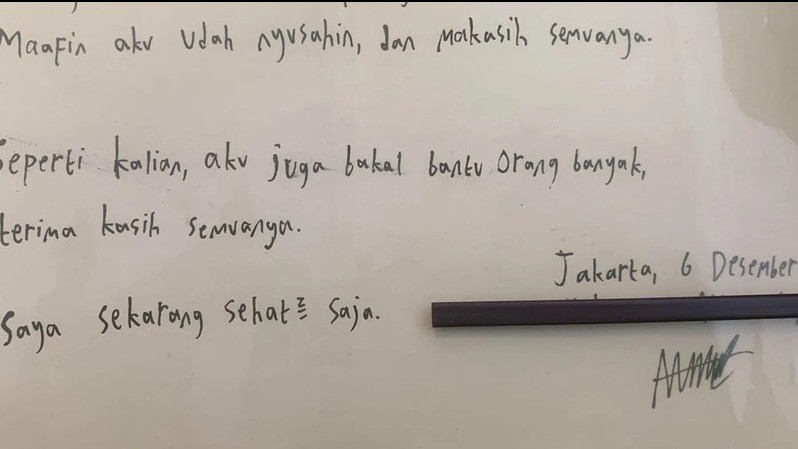 Maafin aku udah nyusahin, dan makasih semuanya.
Seperti kalian, aku juga bakal bantu orang banyak,
terima kasih semuanya.
Jakarta, 6 Desember
Saya sekarang sehat² saja.